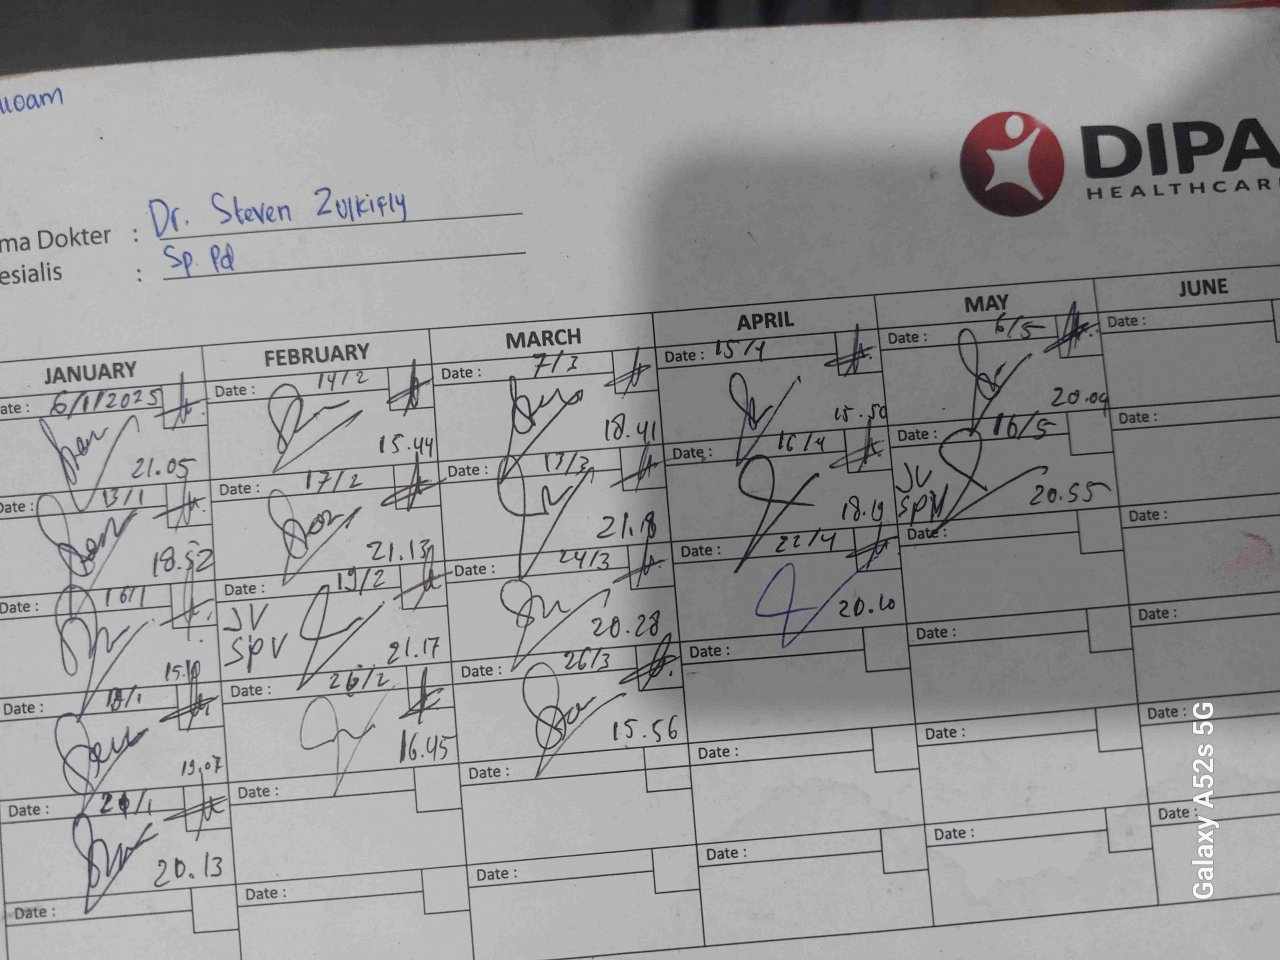 DIPA
HEALTHCAR
ma Dokter : Dr. Steven Zulkifly
esialis : Sp. Pd
JANUARY FEBRUARY MARCH APRIL MAY JUNE
ate : 6/1/2025 Date : 14/2 Date : 7/3 Date : 15/4 Date : 6/5 Date :
21.05 15.44 18.41 15.50 20.09
Date : 13/1 Date : 17/2 Date : 17/3 Date : 16/4 Date : 16/5 Date :
18.52 21.13 21.18 18.19 JV SPV 20.55
Date : 16/1 Date : 19/2 Date : 24/3 Date : 22/4 Date : Date :
JV SPV 21.17 20.28 20.10
Date : Date : 26/2 Date : 26/3 Date : Date : Date :
19.07 16.45 15.56
Date : Date : Date : Date : Date : Date :
20.13
Date : Date : Date : Date : Date : Date :
Galaxy A52s 5G